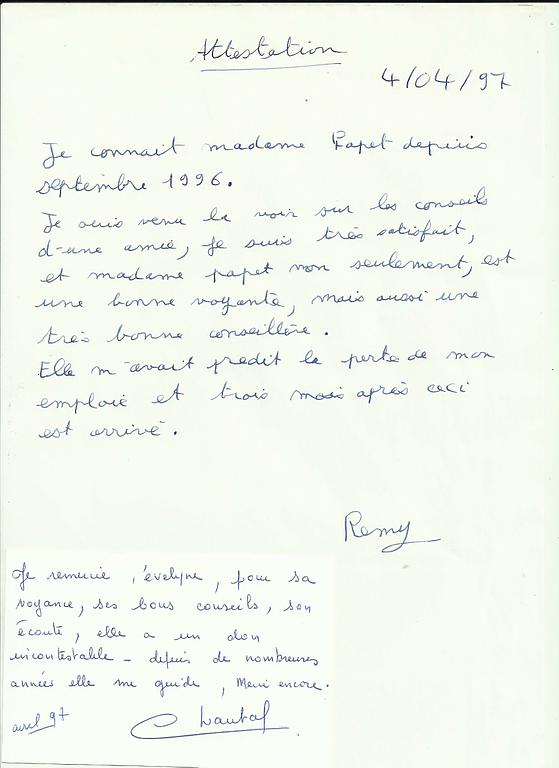 Attestation
4/04/97
Je connait madame Papet depuis
septembre 1996.
Je suis venu la voir sur les conseils
d-une amie, je suis très satisfait,
et madame papet non seulement, est
une bonne voyante, mais aussi une
très bonne conseillère.
Elle m'avait predit la perte de mon
emploie et trois mois après ceci
est arrivé.
Remy
Je remercie, évelyne, pour sa
voyance, ses bons conseils, son
écoute, elle a un don
incontestable - depuis de nombreuses
années elle me guide, Merci encore.
avril 97